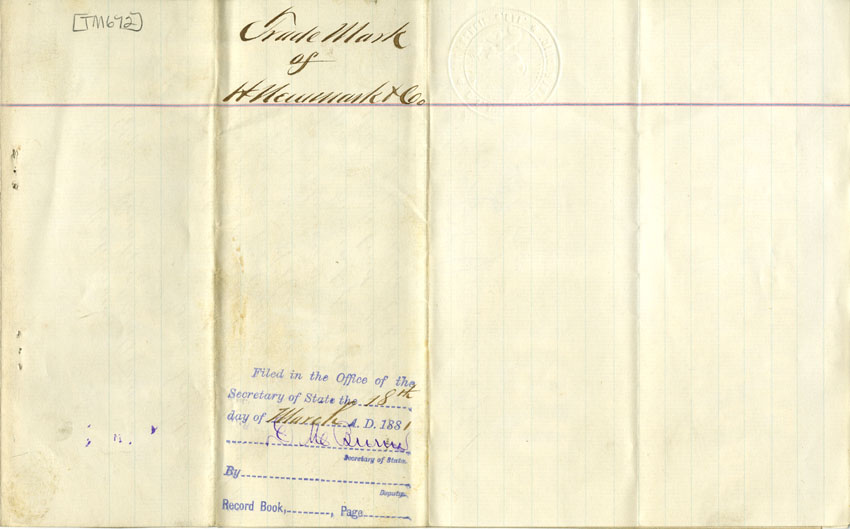 [TM672]
Trade Mark
of
H Newmark & Co.
Filed in the Office of the
Secretary of State the 18th
day of March A. D. 1881
Secretary of State.
By
Deputy.
Record Book, , Page